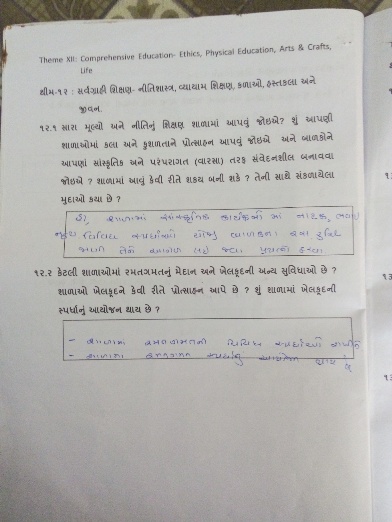 Theme XII: Comprehensive Education- Ethics, Physical Education, Arts & Crafts,
Life
થીમ-૧૨ : સર્વગ્રાહી શિક્ષણ- નીતિશાસ્ત્ર, વ્યાયામ શિક્ષણ, કળાઓ, હસ્તકલા અને
જીવન.
૧૨.૧ સારા મૂલ્યો અને નીતિનું શિક્ષણ શાળામાં આપવું જોઇએ? શું આપણી
શાળાઓમાં કલા અને કુશળતાને પ્રોત્સાહન આપવું જોઇએ અને બાળકોને
આપણાં સાંસ્કૃતિક અને પરંપરાગત (વારસા) તરફ સંવેદનશીલ બનાવવા
જોઇએ ? શાળામાં આવું કેવી રીતે શકય બની શકે ? તેની સાથે સંકળાયેલા
મુદ્દાઓ કયા છે ?
હા, શાળામાં સાંસ્કૃતિક કાર્યક્રમો માં નાટક,
વિવિધ સ્પર્ધાઓ યોજી બાળકના
જાણી તેને આગળ
૧૨.૨ કેટલી શાળાઓમાં રમતગમતનું મેદાન અને ખેલકૂદની અન્ય સુવિધાઓ છે ?
શાળાઓ ખેલકૂદને કેવી રીતે પ્રોત્સાહન આપે છે ? શું શાળામાં ખેલકૂદની
સ્પર્ધાનું આયોજન થાય છે ?
- શાળામાં રમતગમતની વિવિધ સ્પર્ધાઓ
- શાળામાં રમતગમત સ્પર્ધાનું આયોજન થાય છે